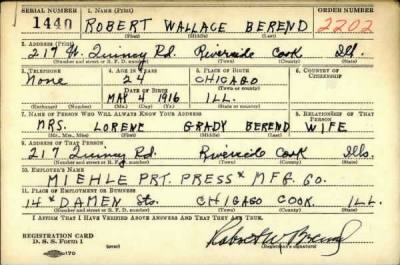 SERIAL NUMBER 1. NAME (Print) ORDER NUMBER
1440 ROBERT WALLACE BEREND 2202
(First) (Middle) (Last)
2. ADDRESS (Print)
217 W. Quincy Rd. Riverside Cook Ill.
(Number and street or R. F. D. number) (Town) (County) (State)
3. TELEPHONE 4. AGE IN YEARS 5. PLACE OF BIRTH 6. COUNTRY OF CITIZENSHIP
None 24 CHICAGO
DATE OF BIRTH (Town or county)
MAY 4 1916 ILL.
(Exchange) (Number) (Mo.) (Day) (Yr.) (State or country)
7. NAME OF PERSON WHO WILL ALWAYS KNOW YOUR ADDRESS 8. RELATIONSHIP OF THAT PERSON
MRS. LORENE GRADY BEREND WIFE
(Mr., Mrs., Miss) (First) (Middle) (Last)
9. ADDRESS OF THAT PERSON
217 Quincy Rd. Riverside Cook Ills.
(Number and street or R. F. D. number) (Town) (County) (State)
10. EMPLOYER'S NAME
MIEHLE PRT. PRESS & MFG. CO.
11. PLACE OF EMPLOYMENT OR BUSINESS
14 & DAMEN Sts. CHICAGO COOK. ILL.
(Number and street or R. F. D. number) (Town) (County) (State)
I AFFIRM THAT I HAVE VERIFIED ABOVE ANSWERS AND THAT THEY ARE TRUE.
REGISTRATION CARD
D. S. S. Form 1 Robert W Berend